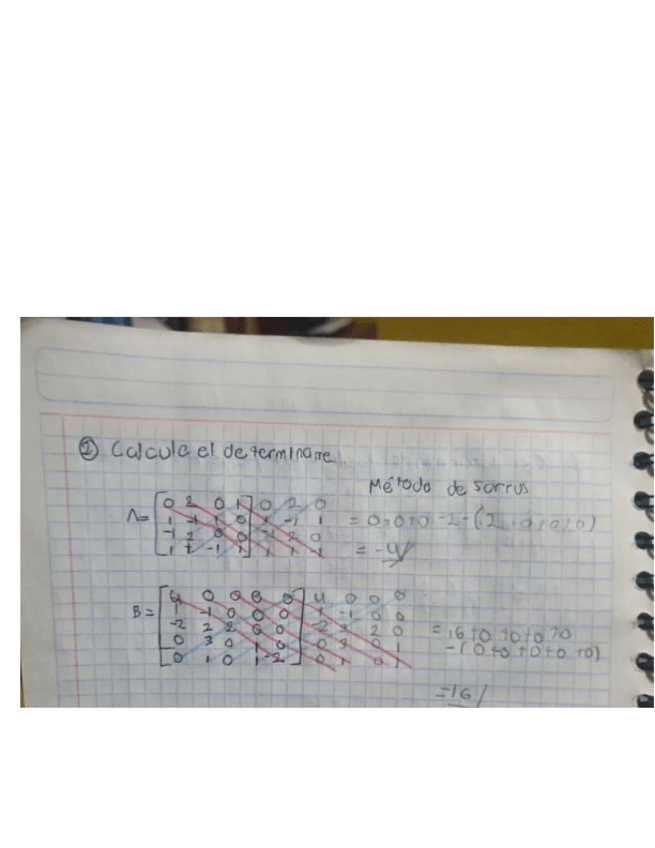 ② Calcula el determinante
Método de Sarrus
A= [0 2 0 1] 0 2 0
1 -1 1 0 1 -1 1
-1 2 0 0 -1 2 0
1 1 -1 1 1 1 -1
= 0+0+0-2-(2+0+0+0)
= -4
B= [4 0 0 0 0] 4 0 0 0
1 -1 0 0 0 1 -1 0 0
-2 2 2 0 0 -2 2 2 0
0 3 0 1 0 0 3 0 1
0 1 0 1 -2 0 1 0 1
= 16+0+0+0+0
-(0+0+0+0+0)
=16